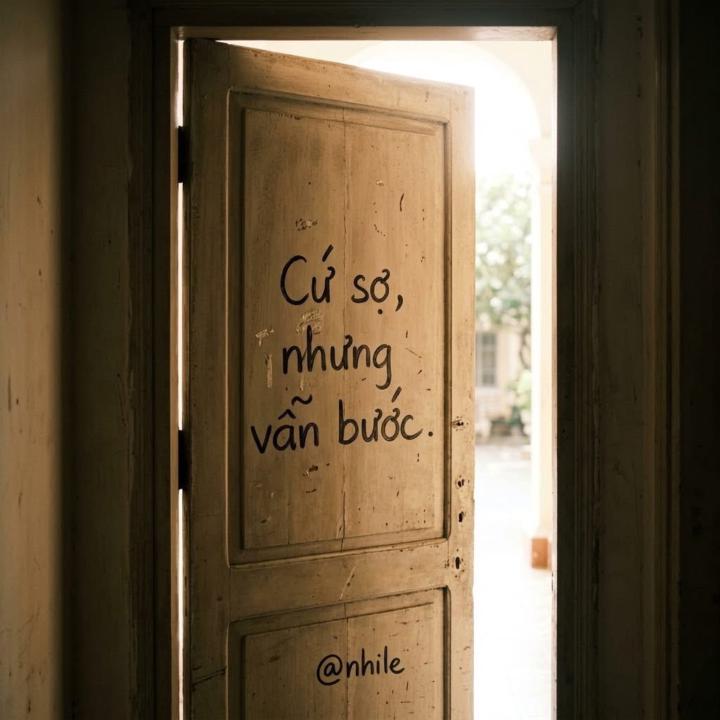 Cứ sợ,
nhưng
vẫn bước.
@nhile